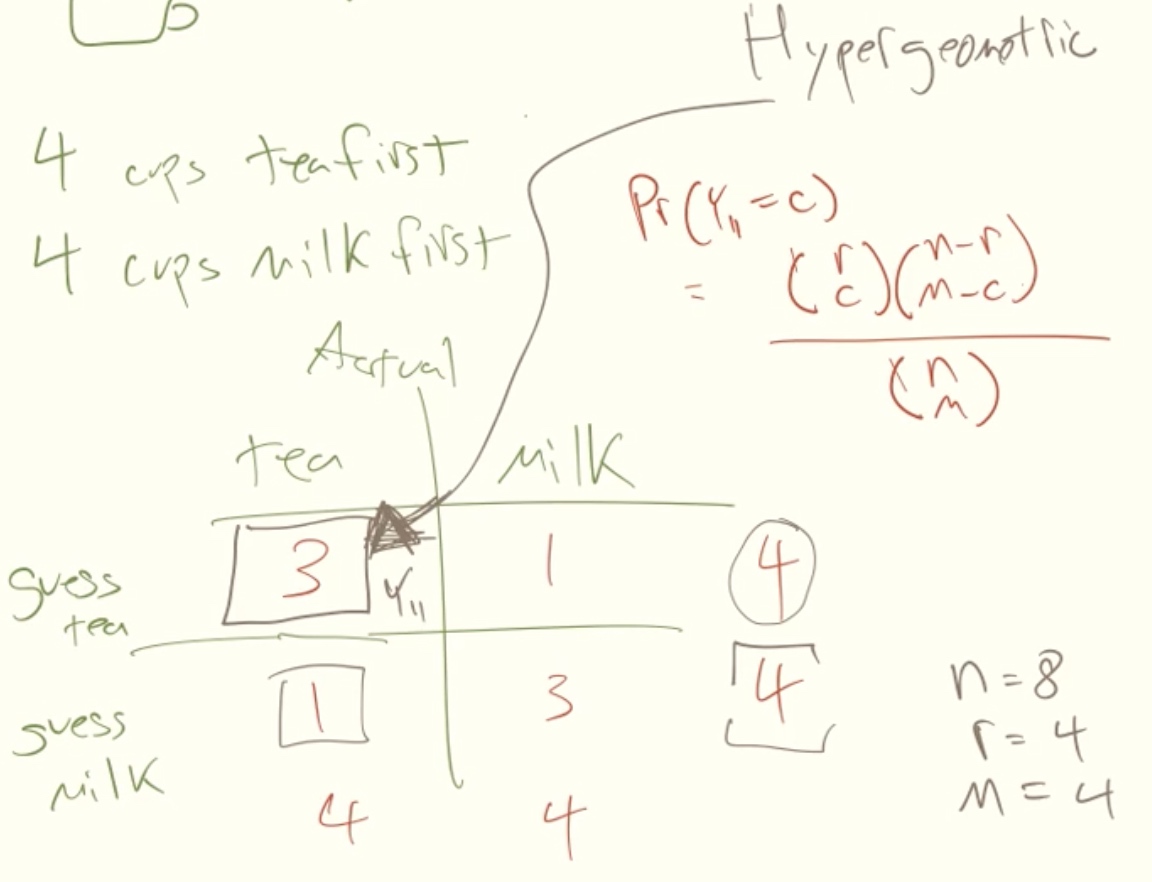 Hypergeometric
4 cups tea first
4 cups milk first
Pr(Y₁₁ = c)
= (r c)(n-r m-c)
(n m)
Actual
tea milk
guess tea 3 Y₁₁ 1 4
guess milk 1 3 4
4 4
n = 8
r = 4
m = 4